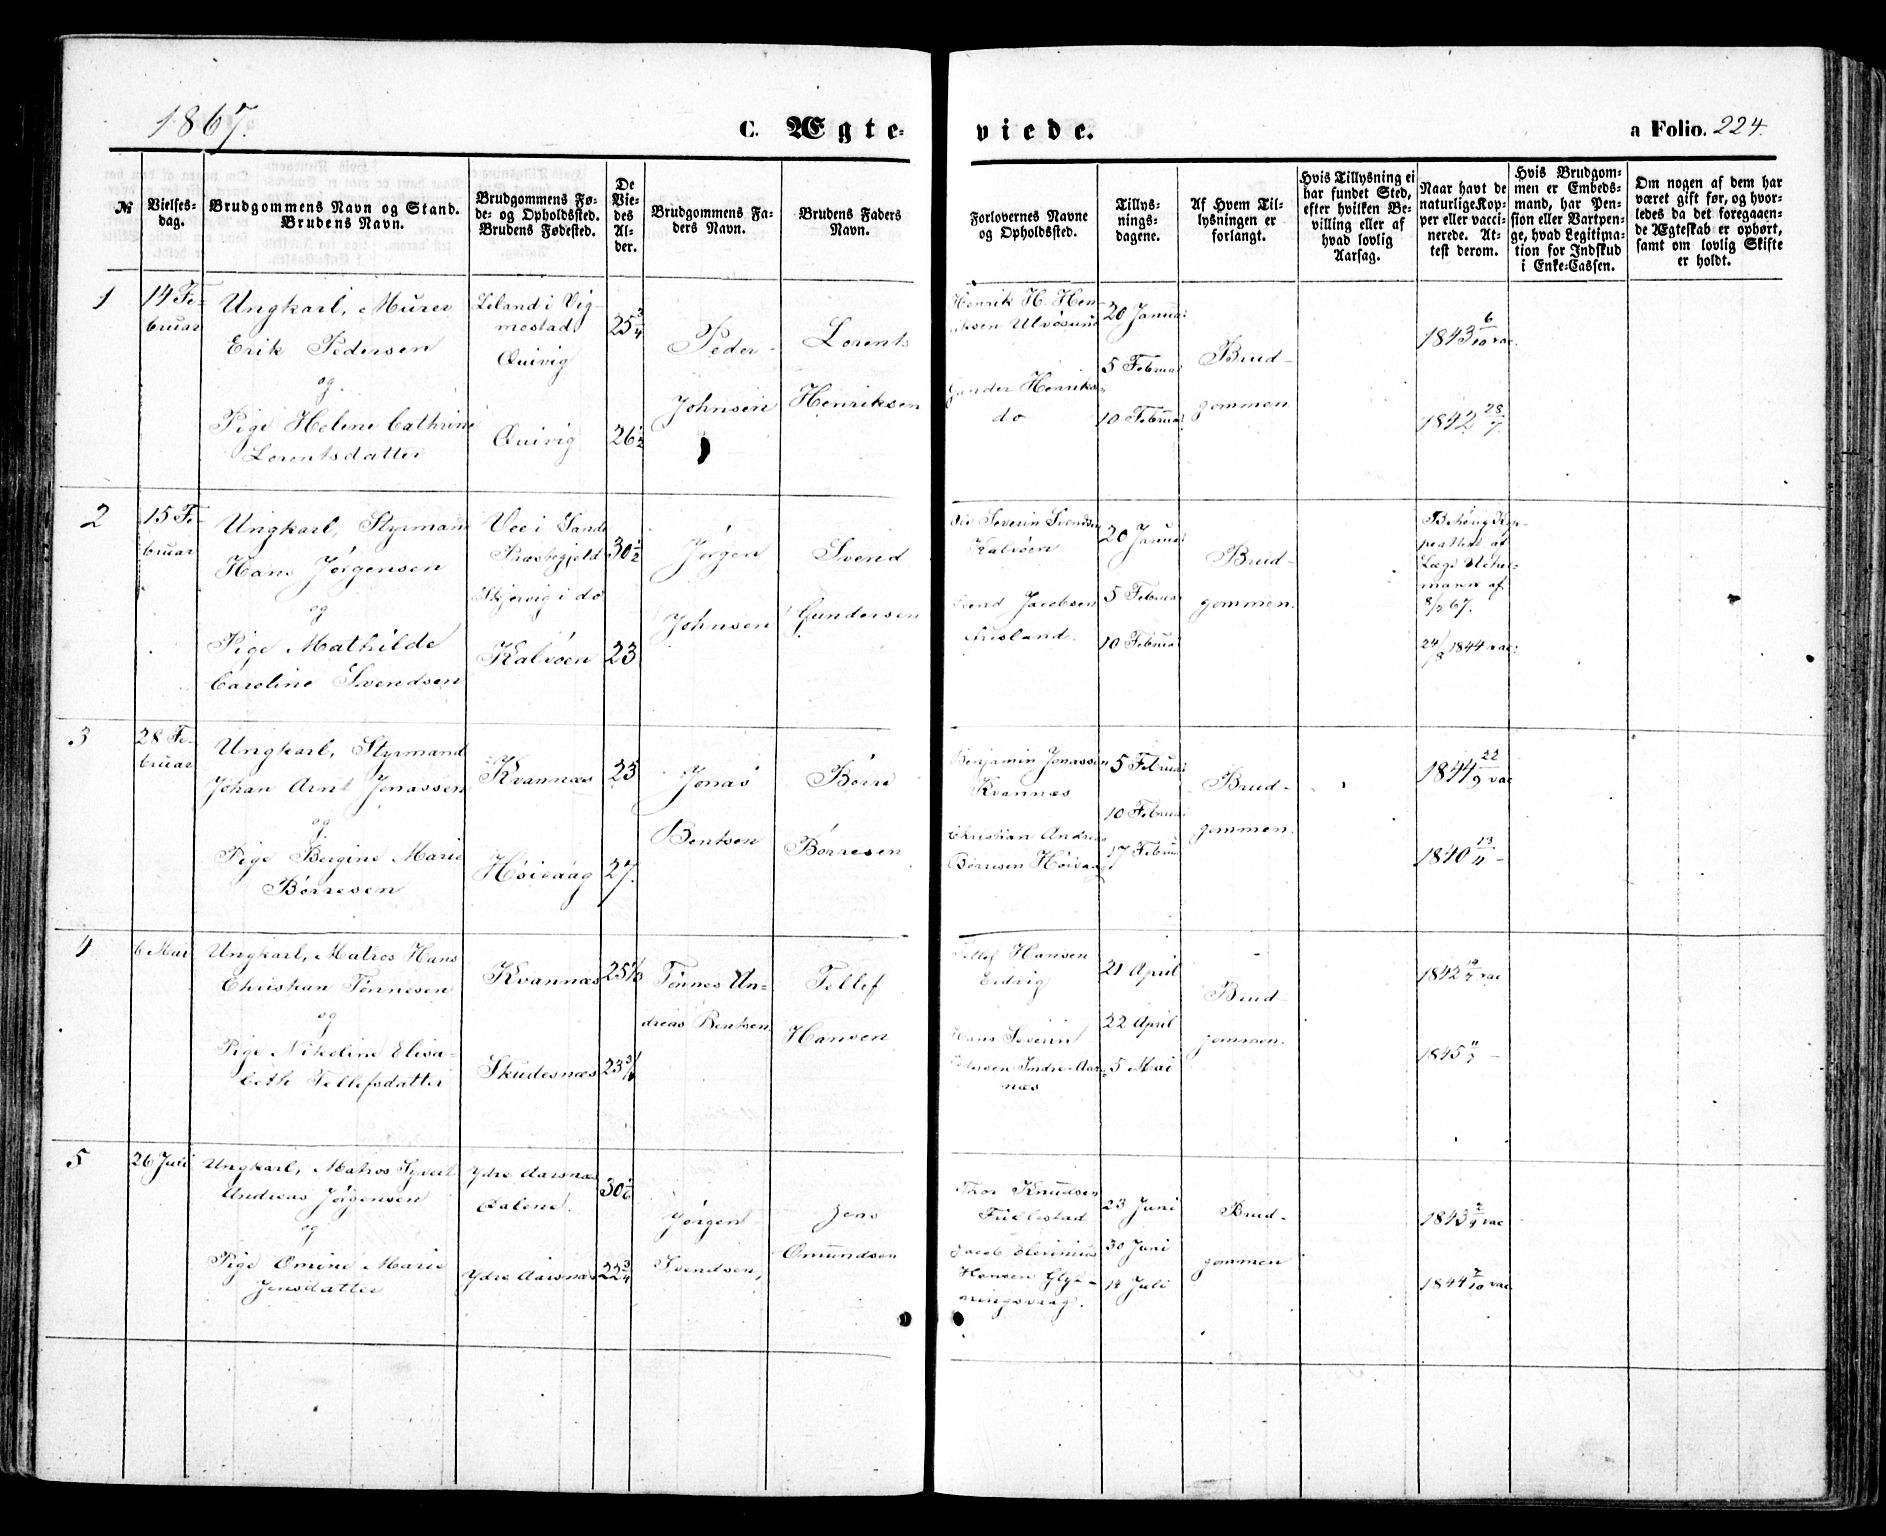 1867.
C. Ægte-
viede.
a Folio. 224.
№
Vielses-
dag.
Brudgommens Navn og Stand.
Brudens Navn.
Brudgommens Fø-
de- og Opholdssted.
Brudens Fødested.
De
Vie-
des
Al-
der.
Brudgommens Fa-
ders Navn.
Brudens Faders
Navn.
Forlovernes Navne
og Opholdssted.
Tillys-
nings-
dagene.
Af Hvem Til-
lysningen er
forlangt.
Hvis Tillysning ei
har fundet Sted,
efter hvilken Be-
villing eller af
hvad lovlig
Aarsag.
Naar havt de
naturlige Kop-
per eller vacci-
nerede. At-
test derom.
Hvis Brudgom-
men er Embeds-
mand, har Pen-
sion eller Vartpen-
ge, hvad Legitima-
tion for Indskud
i Enke-Cassen.
Om nogen af dem har
været gift før, og hvor-
ledes da det foregaaen-
de Ægteskab er ophørt,
samt om lovlig Skifte
er holdt.
1
14 Fe-
bruar
Ungkarl, Murer
Erik Pedersen
og
Pige Helene Cathrine
Lorentsdatter
Leland i Vig-
mostad
Qvivig
Qvivig
25 3/4
26 1/2
Peder
Johnsen
Lorents
Henriksen
Henrik H. Hen-
riksen Ulvøsund
Gunder Henriks-
do
20 Januar
5 Februar
10 Februar
Brud-
gommen
1843 6/10 vac.
1842 28/7
2
15 Fe-
bruar
Ungkarl, Styrmand
Hans Jørgensen
og
Pige Mathilde
Caroline Svendsen
Vee i Sande
Præstegjeld
Skjervig i do
Kalvøen
30 1/2
23
Jørgen
Johnsen
Svend
Gundersen
Severin Svendsen
Kalvøen
Svend Jacobsen
20 Januar
5 Februar
10 Februar
Brud-
gommen.
af
Læge
mann af
8/2 67.
24/8 1844 vac:
3
28 Fe-
bruar
Ungkarl, Styrmand
Johan Arnt Jonassen
og
Pige Bergine Marie
Børresen
Kvannæs
Høivaag
25
27.
Jonas
Bentsen
Børre
Børresen
Benjamin Jonassen
Kvannæs
Christian Andreas
Børresen Høivaag
5 Februar
10 Februar
17 Februar
Brud-
gommen.
1844 22/9 vac
1840 13/11 -
4
6 Mai
Ungkarl, Matros Hans
Christian Tønnesen
og
Pige Nikoline Elisa-
beth Tellefsdatter
Kvannæs
Skudesnæs
25 1/3
Tønnes An-
dreas Bentsen
Tellef
Hansen
Tellef Hansen
Eidvig
Hans Severin
Pedersen Indre-Aas-
næs
21 April
22 April
5 Mai
Brud-
gommen.
1842 vac
1845 11/7 -
5
26 Juli
Ungkarl, Matros Syvert
Andreas Jørgensen
og
Pige Omine Marie
Jensdatter
Ydre Aarsnæs
Dalene.
Ydre Aarsnæs
30 1/6
22 3/4
Jørgen
Svendsen,
Jens
Omundsen
Thor Knudsen
Fuklestad
Jacob Elevinius
Hansen Glyt-
ningsvaag.
23 Juni
30 Juni
14 Juli
Brud-
gommen
1843 2/9 vac
1844 7/10 vac.